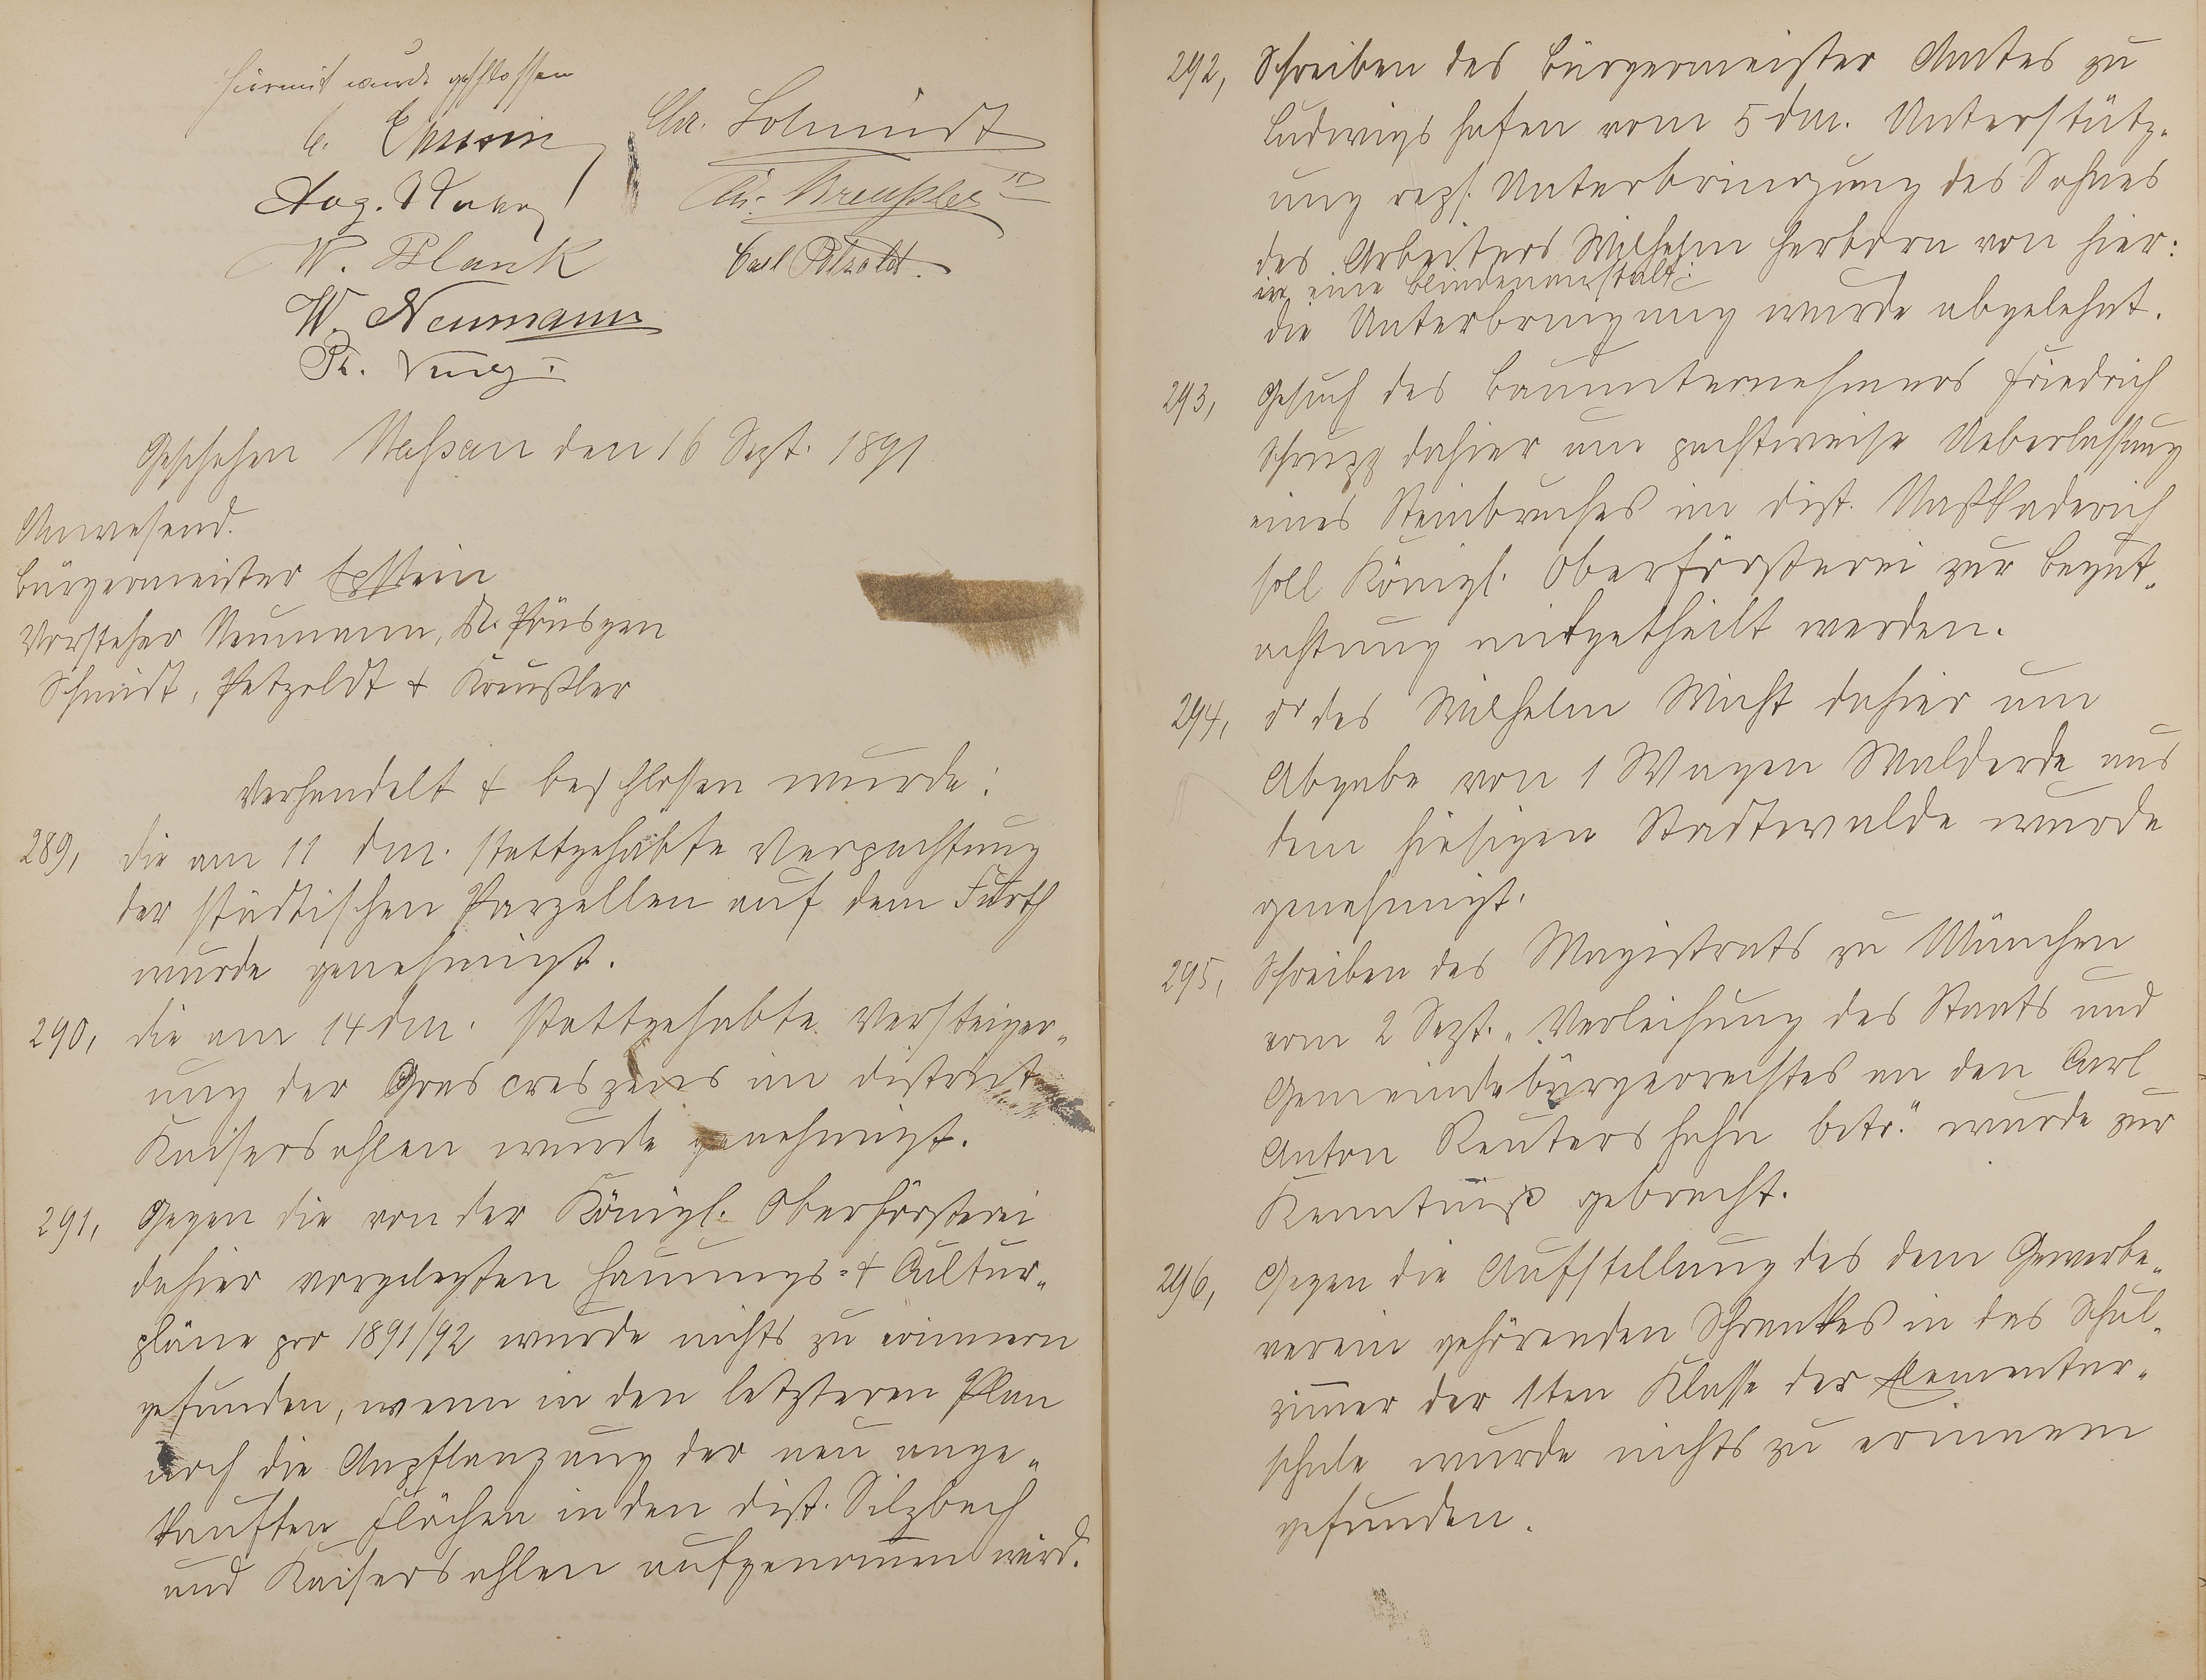 Hiermit wurde geschlossen
Chr. Schmidt
Aug.
Chr. Kreußler
W. Plank
Carl Petzoldt.
W. Neumann
Geschehen Nassau den 16 Sept. 1891
Anwesend.
Bürgermeister Epstein
Vorsteher Neumann,
Schmidt, Petzoldt & Kreußler
Verhandelt & beschlossen wurde:
289, die am 11 dm. stattgehabte Verpachtung
der städtischen Parzellen auf dem Furth
wurde genehmigt.
290, die am 14 dm. stattgehabte Versteiger-
ung der Grascreszens im district
Kaisersohlen wurde genehmigt.
291, Gegen die von der Königl. Oberförsterei
dahier vorgelegten Hauungs- & Cultur-
pläne pro 1891/92 wurde nichts zu erinnern
gefunden, wenn in den letzteren Plan
noch die Anpflanzung der neu ange-
kauften Flächen in den dist. Silzbach
und Kaisersohlen aufgenommen wird.
292, Schreiben des Bürgermeister Amtes zu
Ludwigshafen vom 5 dm. Unterstütz-
ung resp. Unterbringung des Sohnes
des Arbeiters Wilhelm Herborn von hier:
in eine Blindenanstalt:
die Unterbringung wurde abgelehnt.
293, Gesuch des Bauunternehmers Friedrich
Schrupp dahier um pachtweise Ueberlassung
eines Steinbruches im dist.
soll Königl. Oberförsterei zur Begut-
achtung mitgetheilt werden.
294, do des Wilhelm Wicht dahier um
Abgabe von 1 Wagen Walderde aus
dem hiesigen Stadtwalde wurde
genehmigt.
295, Schreiben des Magistrats zu München
vom 2 Sept. „Verleihung des Staats und
Gemeindebürgerrechtes an den Carl
Anton Reutershahn betr." wurde zur
Kenntniß gebracht.
296, Gegen die Aufstellung des dem Gewerbe-
verein gehörenden Schrankes in das Schul-
zimmer der 1ten Klasse der Elementar-
schule wurde nichts zu erinnern
gefunden.